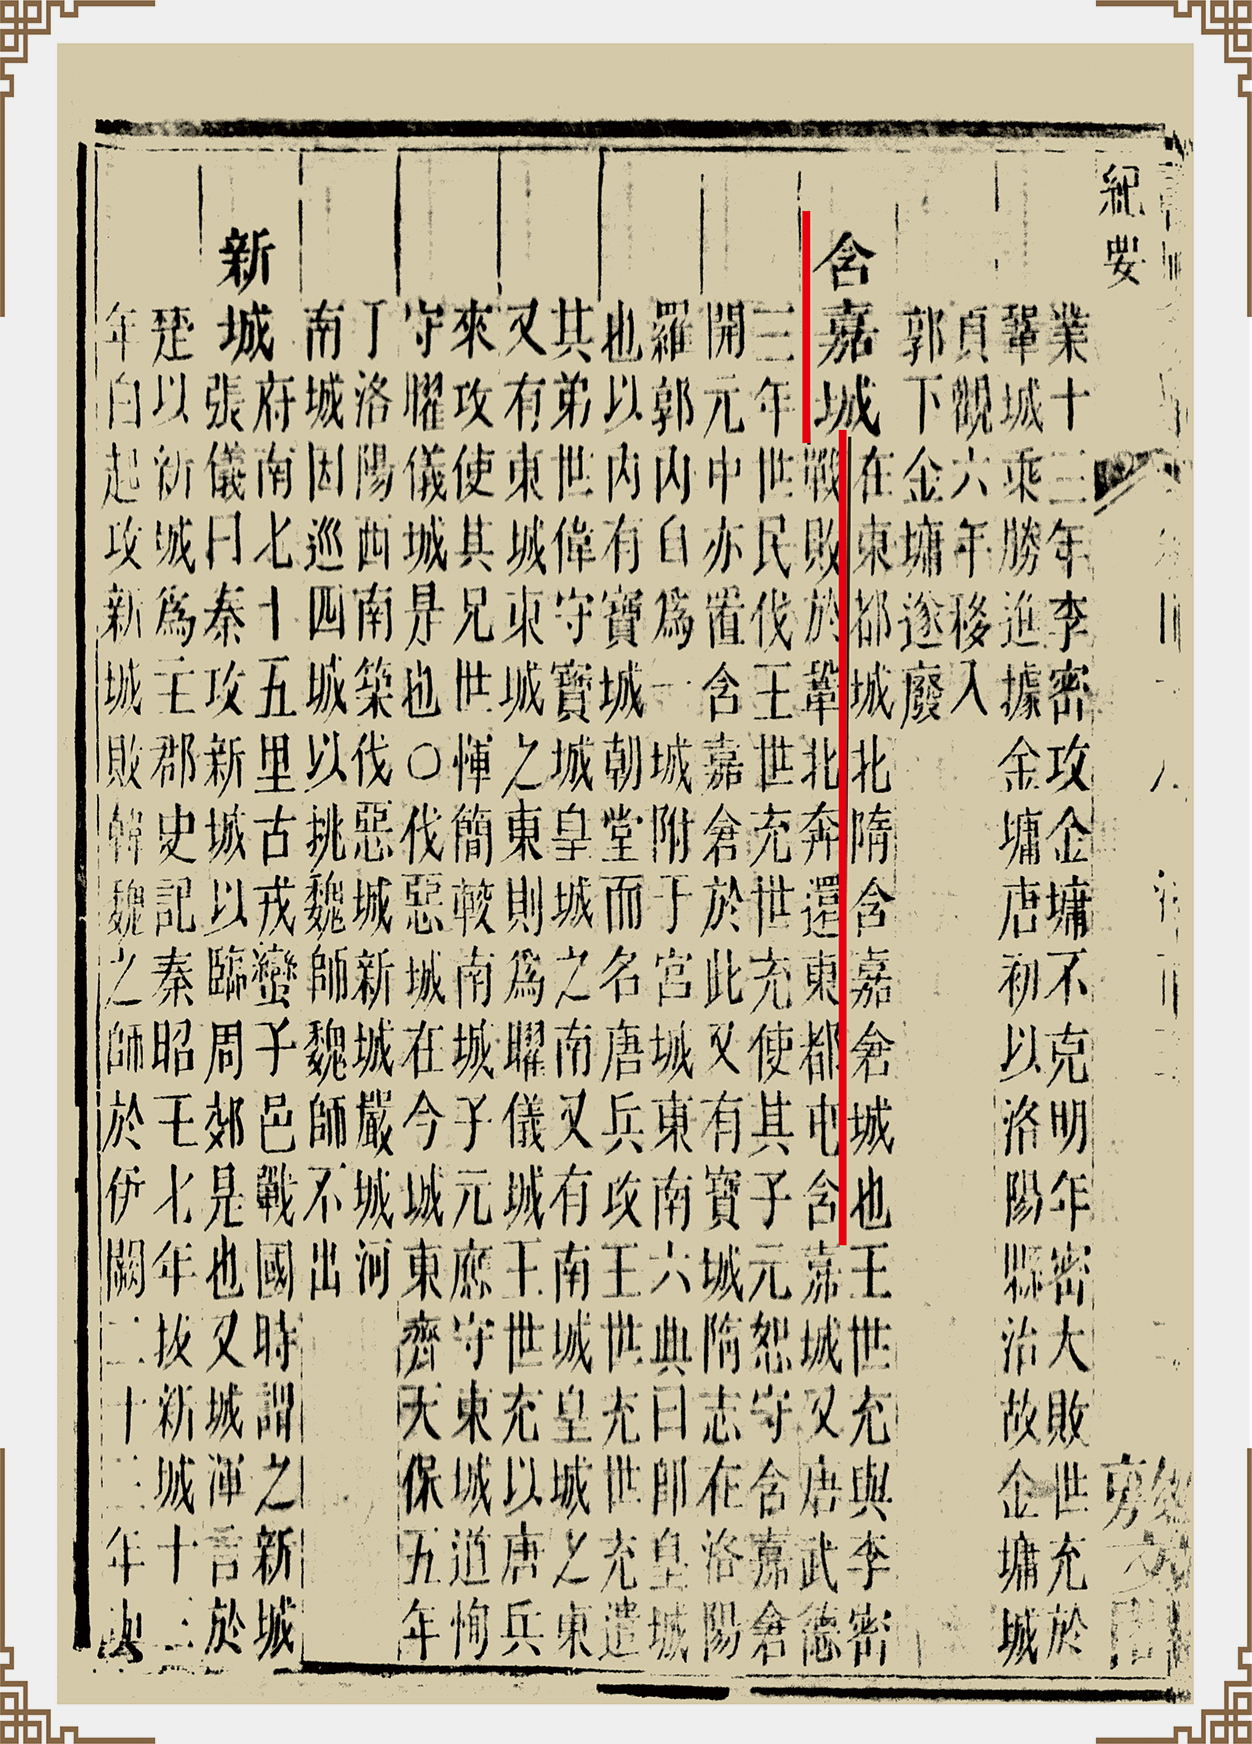 紀要
業十三年李密攻金墉不克明年密大敗世充於
鞏城乘勝進據金墉唐初以洛陽縣治故金墉城
貞觀六年移入
郭下金墉遂廢
含嘉城
在東都城北隋含嘉倉城也王世充與李密
戰敗於鞏北奔還東都屯含嘉城又唐武德
三年世民伐王世充世充使其子元恕守含嘉倉
開元中亦置含嘉倉於此又有寶城隋志在洛陽
羅郭内自爲一城附于宮城東南六典曰即皇城
也以内有寶城朝堂而名唐兵攻王世充世充遣
其弟世偉守寶城皇城之南又有南城皇城之東
又有東城東城之東則爲曜儀城王世充以唐兵
來攻使其兄世惲簡較南城子元應守東城道恂
守曜儀城是也○伐惡城在今城東齊天保五年
丁洛陽西南築伐惡城新城嚴城河
南城因巡四城以挑魏師魏師不出
新城
府南七十五里古戎蠻子邑戰國時謂之新城
張儀曰秦攻新城以臨周郊是也又城渾言於
楚以新城爲主郡史記秦昭王七年拔新城十三
年白起攻新城敗韓魏之師於伊闕二十三年與